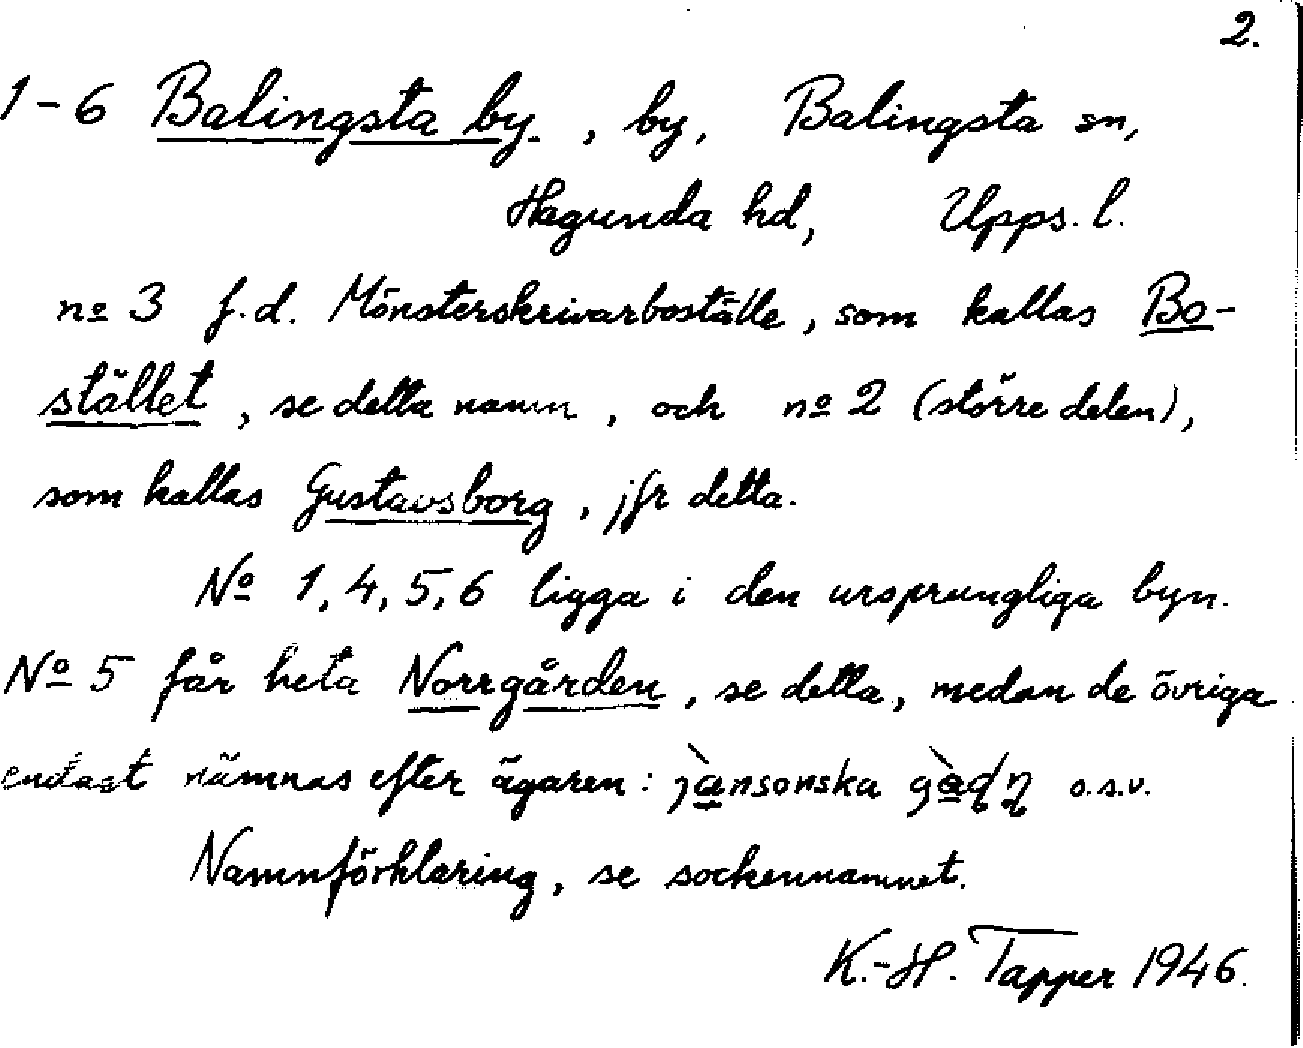 2.
1-6 Balingsta by., by, Balingsta sn,
Hagunda hd, Upps. l.
nº 3 f.d. Mönsterskrivarboställe, som kallas Bo-
stället, se detta namn, och nº 2 (större delen),
som kallas Gustavsborg, jfr detta.
Nº 1, 4, 5, 6 ligga i den ursprungliga byn.
Nº 5 får heta Norrgården, se detta, medan de övriga
endast nämnas efter ägaren: jànsonska gàɖɳ o.s.v.
Namnförklaring, se sockennamnet.
K.-H. Tapper 1946.